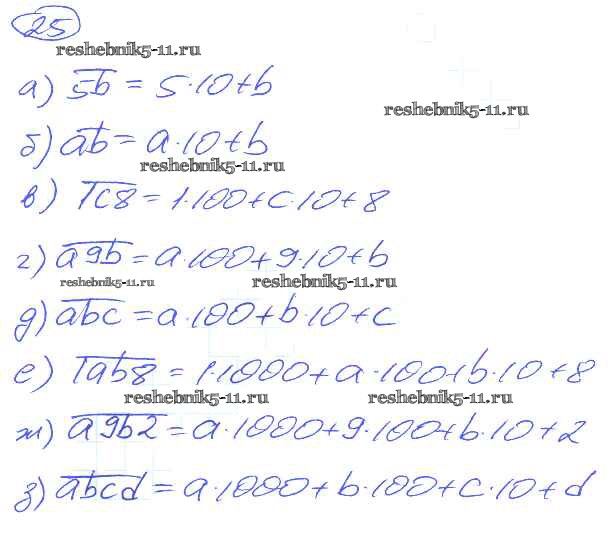 25
reshebnik5-11.ru
а) 5b = 5·10+b
reshebnik5-11.ru
б) ab = a·10+b
reshebnik5-11.ru
в) 1c8 = 1·100+c·10+8
г) a9b = a·100+9·10+b
reshebnik5-11.ru reshebnik5-11.ru
д) abc = a·100+b·10+c
е) 1ab8 = 1·1000+a·100+b·10+8
reshebnik5-11.ru reshebnik5-11.ru
ж) a9b2 = a·1000+9·100+b·10+2
з) abcd = a·1000+b·100+c·10+d